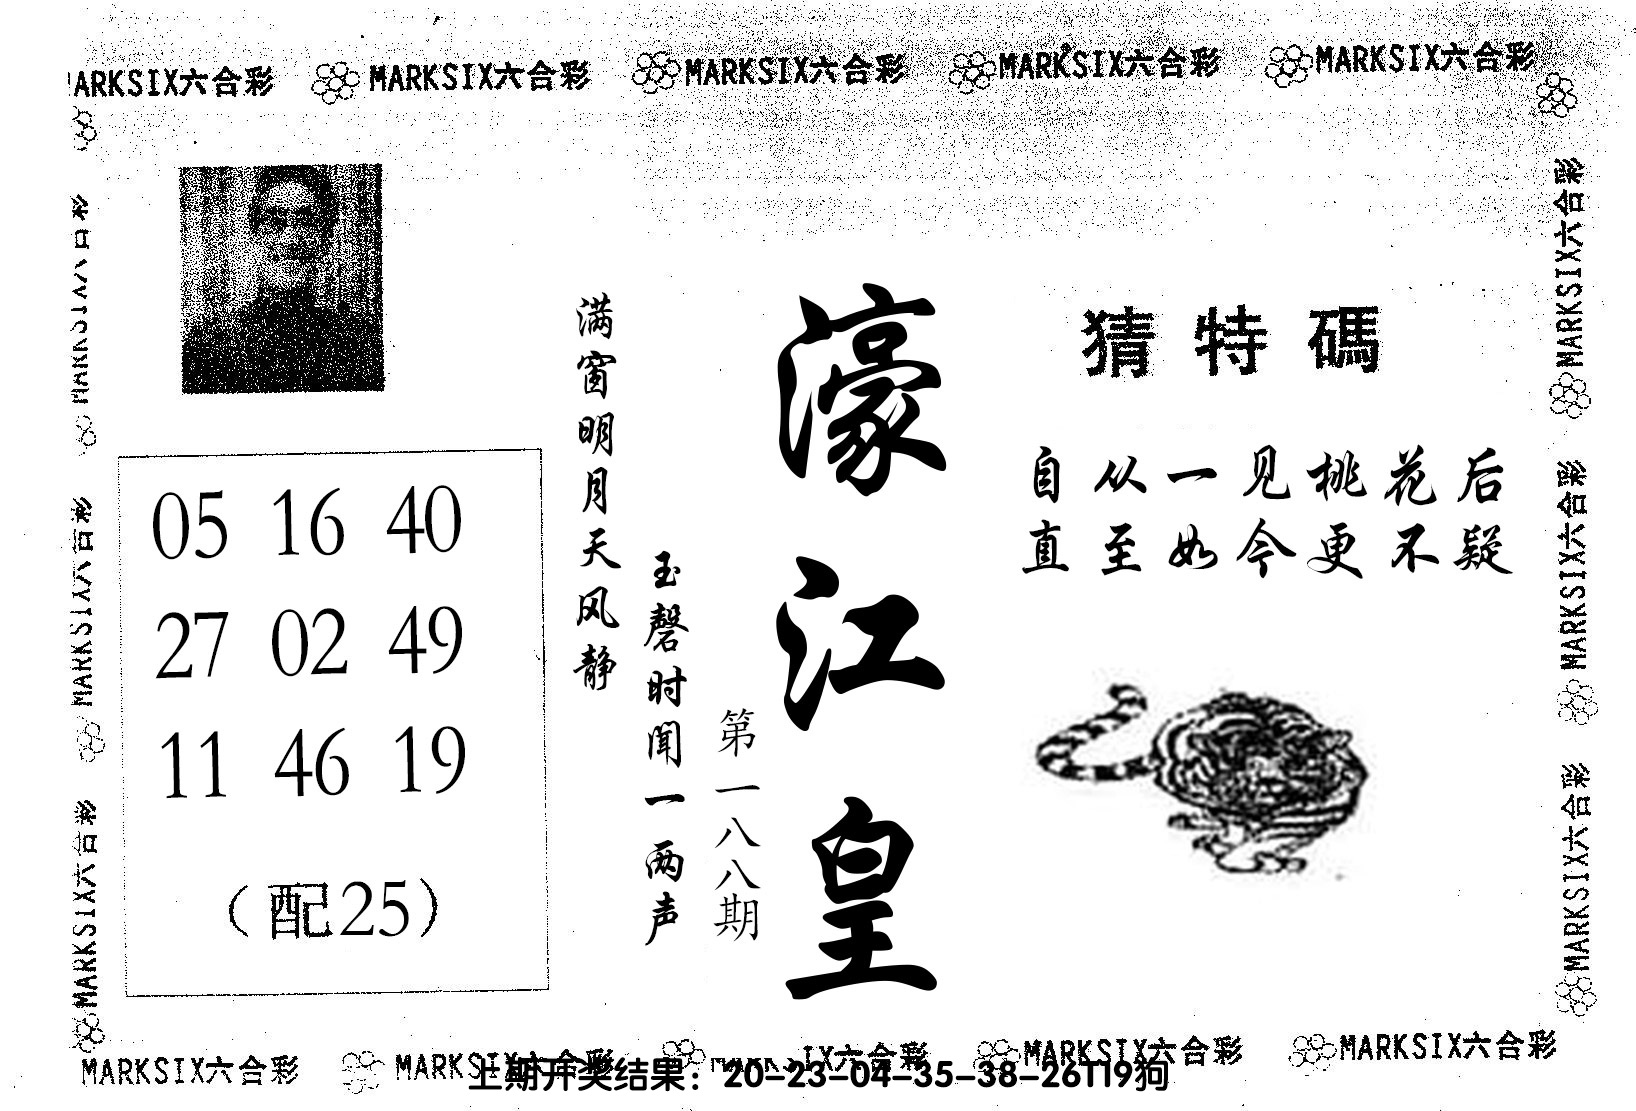 MARKSIX六合彩 MARKSIX六合彩 MARKSIX六合彩 MARKSIX六合彩
猜特碼
自从一见桃花后
直至如今更不疑
濠江皇
第一八八期
满窗明月天风静
玉磬时闻一两声
05 16 40
27 02 49
11 46 19
（配25）
MARKSIX六合彩
MARKSIX六合彩
MARKSIX六合彩
MARKSIX六合彩
MARKSIX六合彩
MARKSIX六合彩 MARKSIX六合彩 MARKSIX六合彩
上期开奖结果：20-23-04-35-38-26T19狗